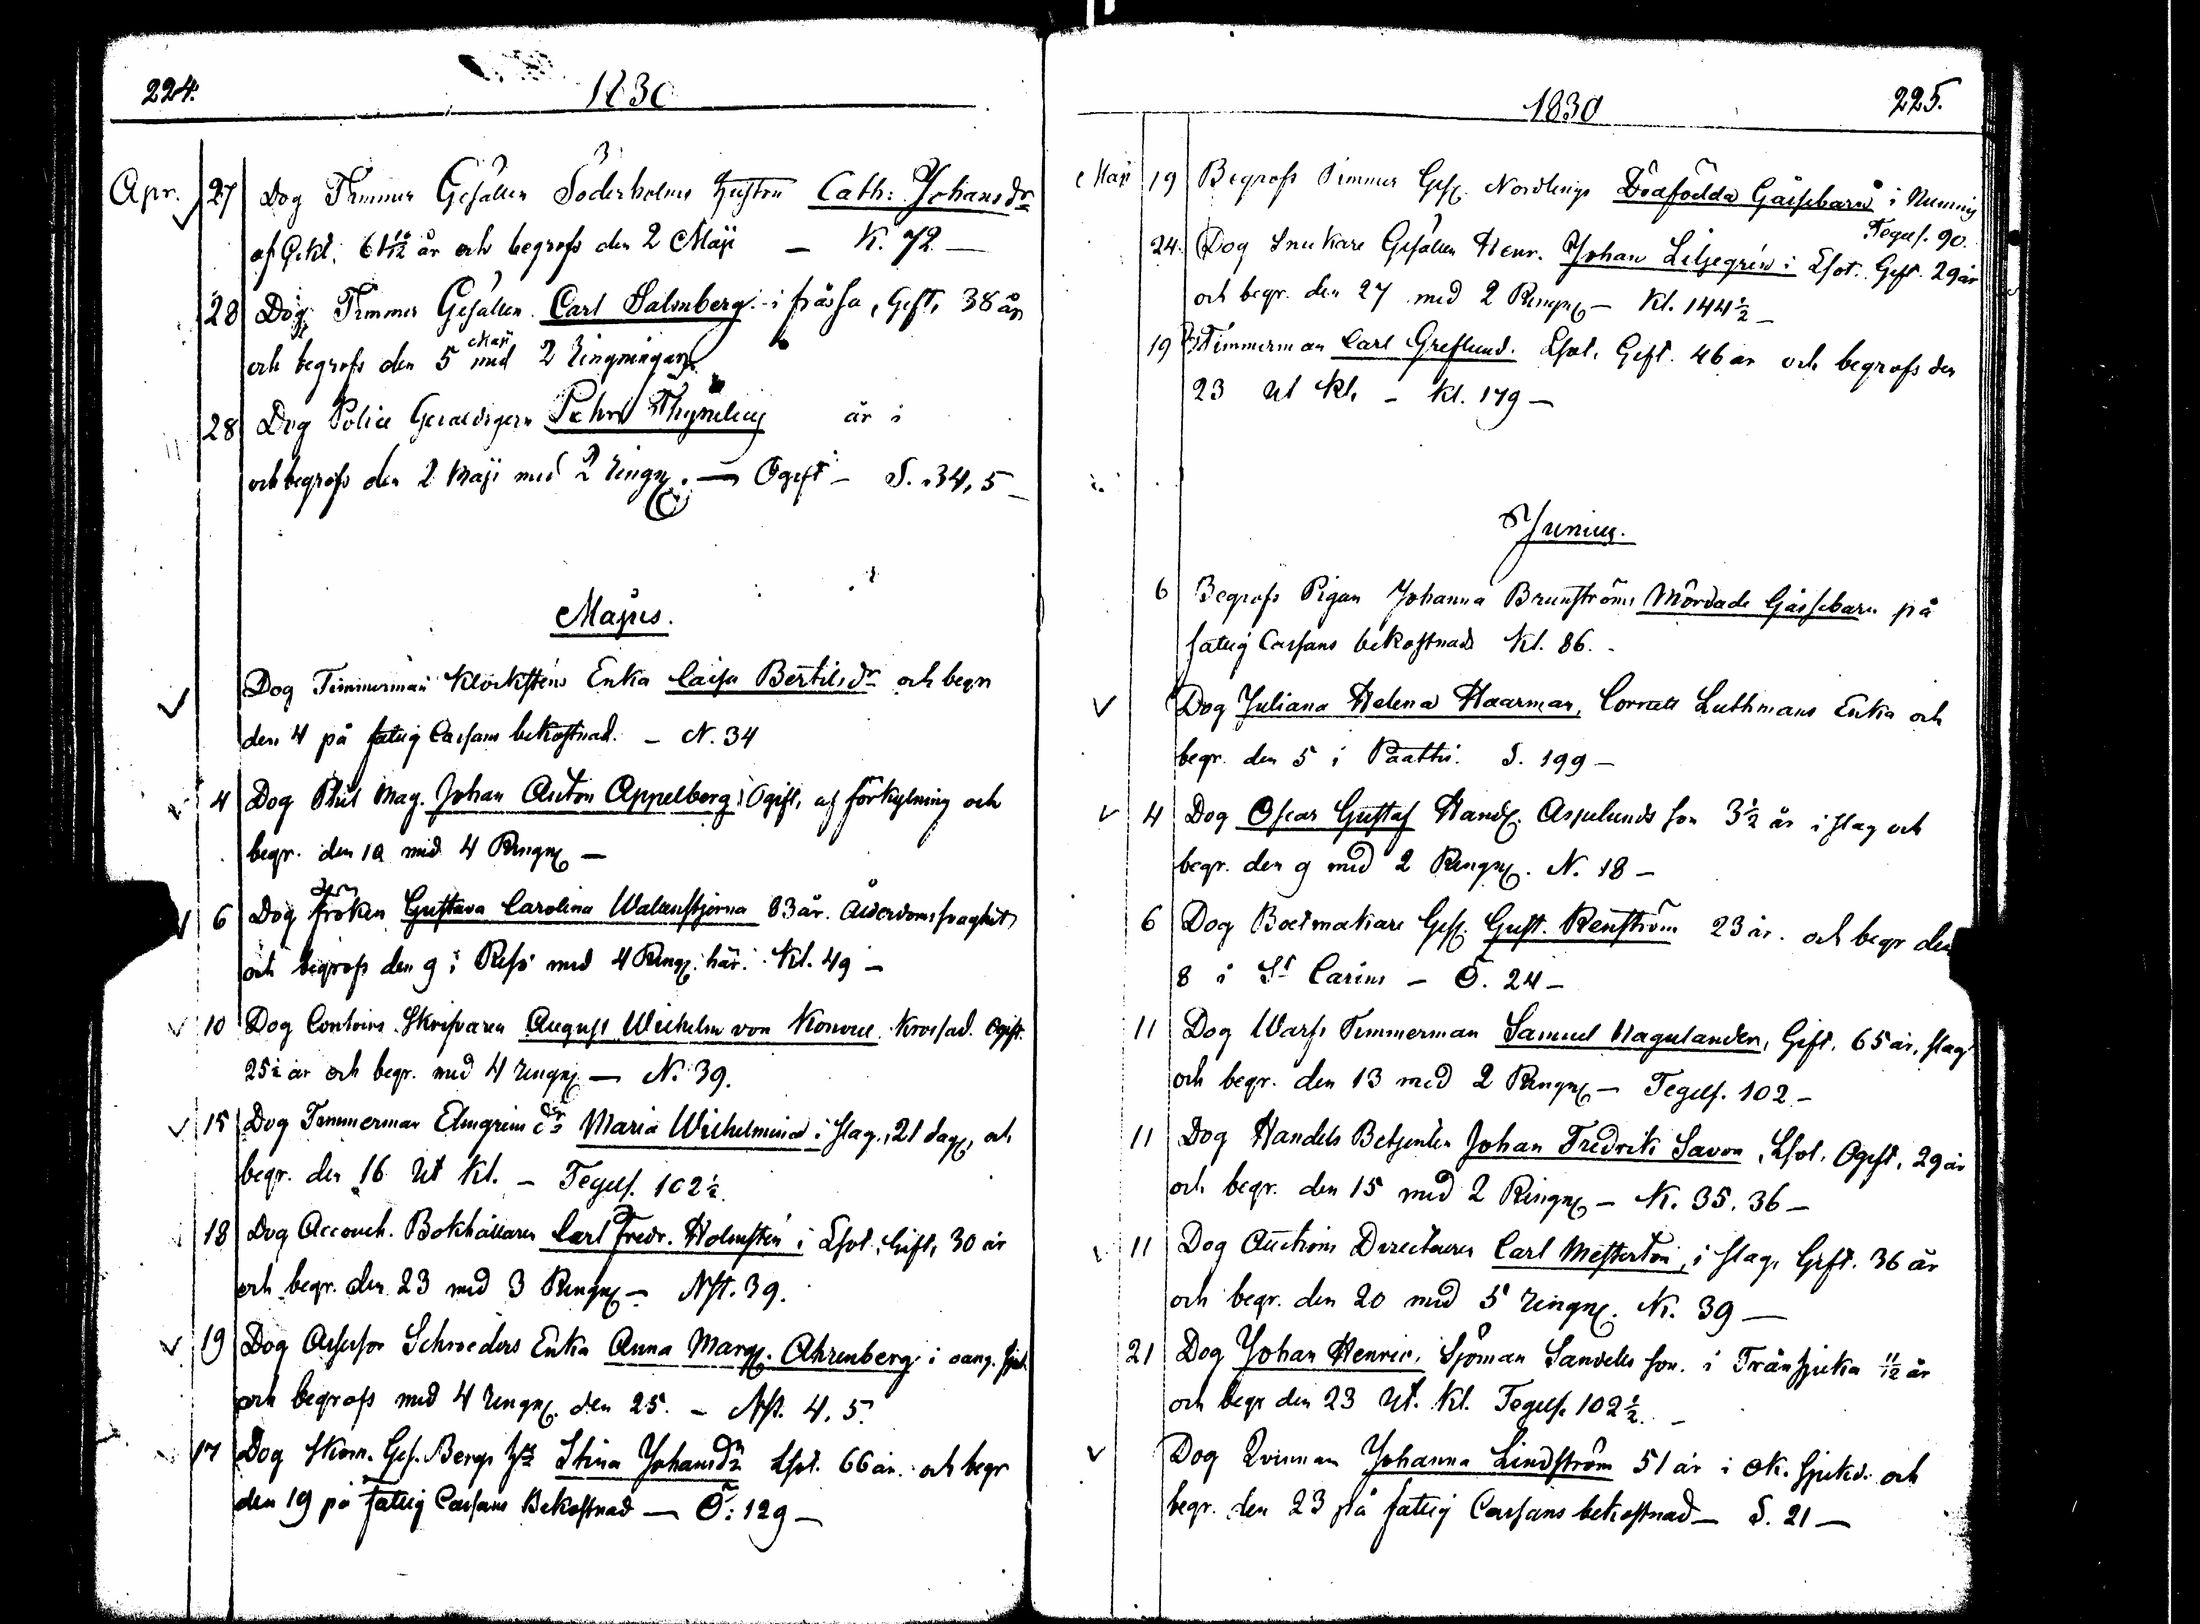 224.
1830
Apr. 27 Dog Timmer Gesällen Söderholms hustru Cath: Johansdr
af Gikt. 61 10/12 år och begrofs den 2 Maji — K. 72 —
28 Dog Timmer Gesällen Carl Salmberg i frässa, Gift, 38 år
och begrofs den 5 Maji med 2 Ringningar
28 Dog Police Gevaldigern Pehr år i
och begrofs den 2 Maji med 2 ringn. — Ogift — S. 34, 5 —
Majus.
Dog Timmerman Klöckstens Enka Caisa Bertilsdr och begrs
den 4 på fattig Cassans bekostnad. — N. 34
4 Dog Phil Mag. Johan Anton Appelberg, Ogift, af förkylning och
begr. den 10 med 4 Ringn —
6 Dog Fröken Gustava Carolina Wallenstjerna 83 år. Ålderdomsvaghet
och begrofs den 9 i Resö med 4 Ringn. här. Kl. 49 —
10 Dog Contoirs Skrifvaren August Wilhelm von Konow Ogift.
25½ år och begr. med 4 ringn — N. 39.
15 Dog Timmerman Elmgrens dr Maria Wilhelmina i slag, 21 dag, och
begr. den 16 Ut Kl. — Tegels. 102½.
18 Dog Accouch. Bokhållaren Carl Fredr. Holmsten i Lsot. Gift, 30 år
och begr. den 23 med 3 Ringn — Nst. 39.
19 Dog Assessor Schroeders Enka Anna Marg. Ahrenberg i
och begrofs med 4 ringn. den 25. — Nst. 4, 5.
17 Dog Skom. Ges. Bergs hu Stina Johansdr Lsot. 66 år. och begr
den 19 på fattig Cassans Bekostnad — Ö: 129 —
1830
225.
Maji 19 Begrofs Timmer Ges. Nordlings Dödfödda Gåssebarn i Nummis
Tegels. 90.
24. Dog Snickare Gesällen Henr. Johan Liljegrén i Lsot. Gift. 29 år
och begr. den 27 med 2 Ringn — Kl. 144½ —
19 Timmerman Carl Greflund. Lsot, Gift. 46 år och begrofs den
23 Ut Kl. — Kl. 179 —
Junius.
6 Begrofs Pigan Johanna Brunströms Mördade Gåssebarn på
fattig Cassans bekostnad Kl. 86.
Dog Juliana Helena Haarman, Luthmans Enka och
begr. den 5 i Paattis. S. 199 —
4 Dog Oscar Gustaf Handl. Asplunds son 3½ år i slag och
begr. den 9 med 2 Ringn. N. 18 —
6 Dog Bocktmakare Ges. Gust. Renström 23 år. och begr den
8 i St Carins — Ö. 24 —
11 Dog Warfs Timmerman Samuel Hagelander, Gift, 65 år, slag
och begr. den 13 med 2 Ringn — Tegels. 102 —
11 Dog Handels Betjenten Johan Fredrik Savon, Lsot, Ogift, 29 år
och begr. den 15 med 2 Ringn — N. 35. 36 —
11 Dog Auctions Directeuren Carl Mesterton, i slag, Gift. 36 år
och begr. den 20 med 5 ringn. N. 39 —
21 Dog Johan Henric, Sjöman Sandells son. i Trånsjuka 11/12 år
och begr den 23 Ut. Kl. Tegels. 102½. —
Dog Qvinnan Johanna Lindström 51 år i ok. sjukd. och
begr. den 23 på fattig Cassans bekostnad — S. 21 —